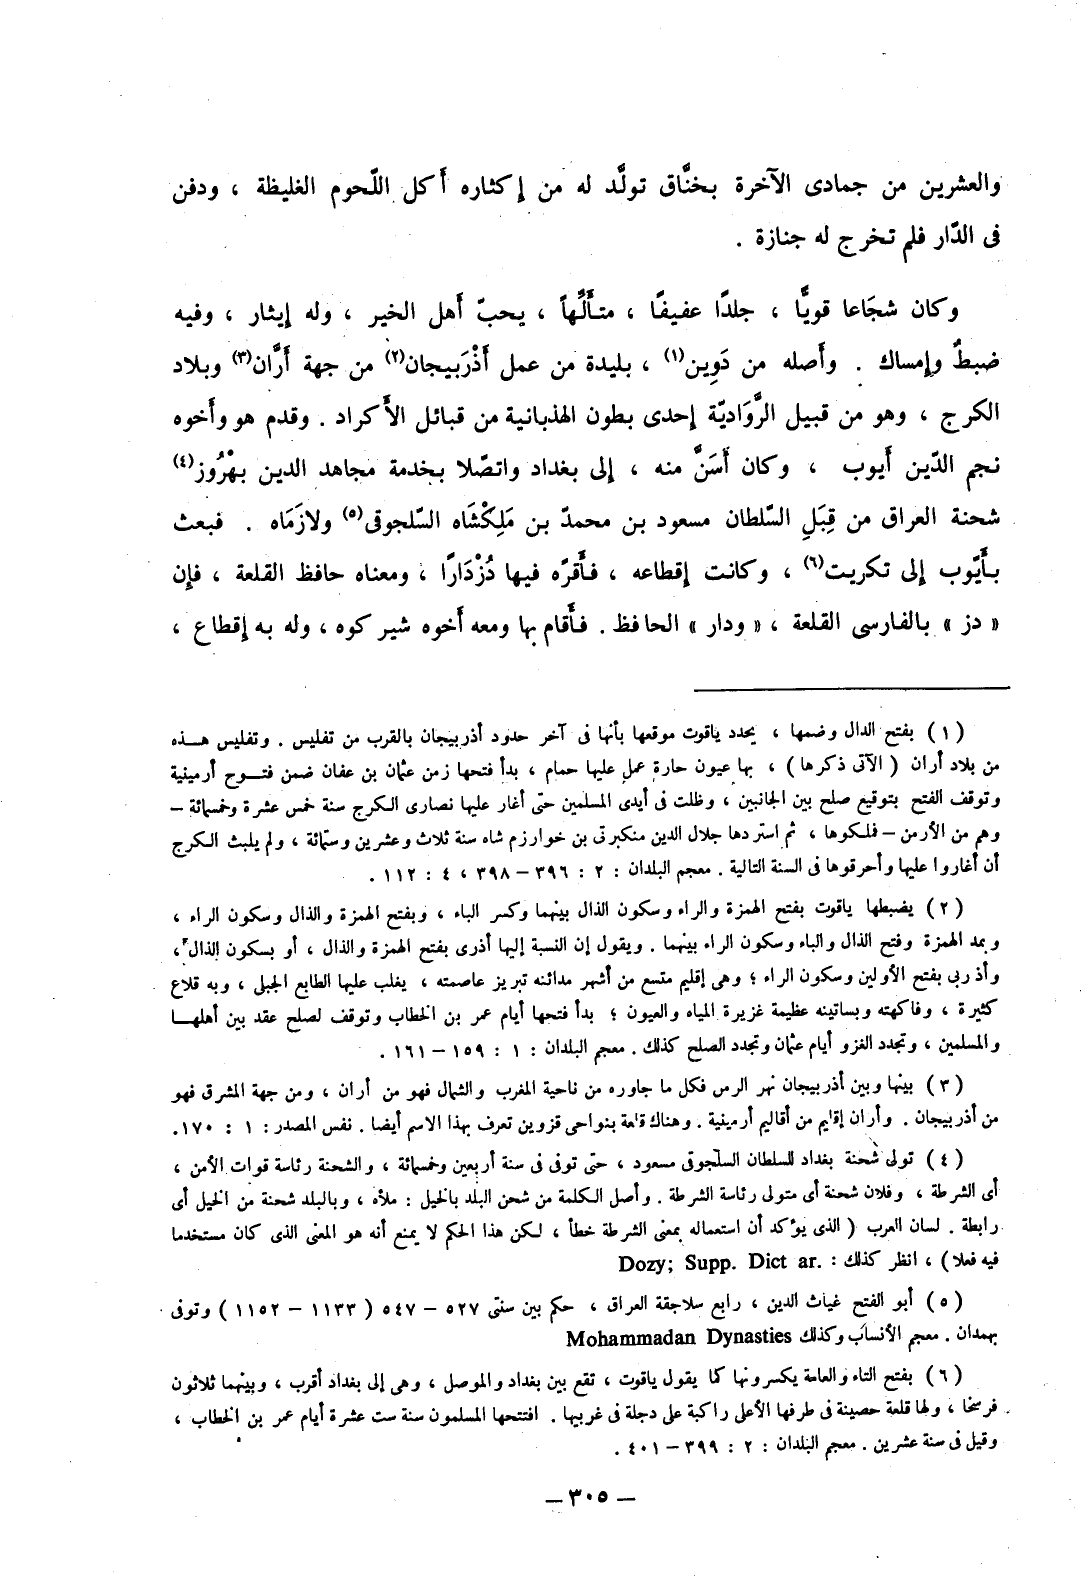 والعشرين من جمادى الآخرة بخنَّاق تولَّد له من إكثاره أَكل اللّحوم الغليظة ، ودفن
فى الدّار فلم تخرج له جنازة .
وكان شجَاعا قويًّا ، جلدًا عفيفًا ، متأَلِّهاً ، يحبّ أَهل الخير ، وله إيثار ، وفيه
ضبطٌ وإمساك . وأَصله من دَوِين(١) ، بليدة من عمل أَذْرَبيجان(٢) من جهة أَرَّان(٣) وبلاد
الكرج ، وهو من قبيل الرَّوَاديّة إحدى بطون الهذبانية من قبائل الأَكراد . وقدم هو وأَخوه
نجم الدّين أَيوب ، وكان أَسَنَّ منه ، إلى بغداد واتصّلا بخدمة مجاهد الدين بهْرُوز(٤)
شحنة العراق من قِبَلِ السّلطان مسعود بن محمدّ بن مَلِكْشَاه السّلجوقى(٥) ولازَمَاه . فبعث
بأَيّوب إلى تكريت(٦) ، وكانت إقطاعه ، فأَقرّه فيها دُزْدَارًا ، ومعناه حافظ القلعة ، فإن
« دز » بالفارسى القلعة ، « ودار » الحافظ . فأَقام بها ومعه أَخوه شير كوه ، وله به إقطاع ،
(١) بفتح الدال وضمها ، يحدد ياقوت موقعها بأنها فى آخر حدود أذربيجان بالقرب من تفليس . وتفليس هــذه
من بلاد أران ( الآتى ذكرها ) ، بها عيون حارة عمل عليها حمام ، بدأ فتحها زمن عثمان بن عفان ضمن فتــوح أرمينية
وتوقف الفتح بتوقيع صلح بين الجانبين ، وظلت فى أيدى المسلمين حتى أغار عليها نصارى الكرج سنة خمس عشرة وخمسمائة –
وهم من الأرمن – فملكوها ، ثم استردها جلال الدين منكبرتى بن خوارزم شاه سنة ثلاث وعشرين وستمائة ، ولم يلبث الكرج
أن أغاروا عليها وأحرقوها فى السنة التالية . معجم البلدان : ٢ : ٣٩٦ – ٣٩٨ ، ٤ : ١١٢ .
(٢) يضبطها ياقوت بفتح الهمزة والراء وسكون الذال بينهما وكسر الباء ، وبفتح الهمزة والذال وسكون الراء ،
وبمد الهمزة وفتح الذال والباء وسكون الراء بينهما . ويقول إن النسبة إليها أذرى بفتح الهمزة والذال ، أو بسكون الذال ،
وأذربى بفتح الأولين وسكون الراء ؛ وهى إقليم متسع من أشهر مدائنه تبريز عاصمته ، يغلب عليها الطابع الجبلى ، وبه قلاع
كثيرة ، وفاكهته وبساتينه عظيمة غزيرة المياه والعيون ؛ بدأ فتحها أيام عمر بن الخطاب وتوقف لصلح عقد بين أهلهــا
والمسلمين ، وتجدد الغزو أيام عثمان وتجدد الصلح كذلك . معجم البلدان : ١ : ١٥٩ – ١٦١ .
(٣) بينها وبين أذربيجان نهر الرس فكل ما جاوره من ناحية المغرب والشمال فهو من أران ، ومن جهة المشرق فهو
من أذربيجان . وأران إقليم من أقاليم أرمينية . وهناك قلعة بنواحى قزوين تعرف بهذا الاسم أيضا . نفس المصدر : ١ : ١٧٠.
(٤) تولى شحنة بغداد للسلطان السلجوقى مسعود ، حتى توفى فى سنة أربعين وخمسمائة ، والشحنة رئاسة قوات الأمن ،
أى الشرطة ، وفلان شحنة أى متولى رئاسة الشرطة . وأصل الكلمة من شحن البلد بالخيل : ملأه ، وبالبلد شحنة من الخيل أى
رابطة . لسان العرب ( الذى يؤكد أن استعماله بمعنى الشرطة خطأ ، لكن هذا الحكم لا يمنع أنه هو المعنى الذى كان مستخدما
فيه فعلا ) ، انظر كذلك : Dozy; Supp. Dict ar.
(٥) أبو الفتح غياث الدين ، رابع سلاجقة العراق ، حكم بين سنتى ٥٢٧ – ٥٤٧ ( ١١٣٣ – ١١٥٢ ) وتوفى
بهمدان . معجم الأنساب وكذلك Mohammadan Dynasties
(٦) بفتح التاء والعامة يكسرونها كما يقول ياقوت ، تقع بين بغداد والموصل ، وهى إلى بغداد أقرب ، وبينهما ثلاثون
فرسخا ، ولها قلعة حصينة فى طرفها الأعلى راكبة على دجلة فى غربيها . افتتحها المسلمون سنة ست عشرة أيام عمر بن الخطاب ،
وقيل فى سنة عشرين . معجم البلدان : ٢ : ٣٩٩ – ٤٠١ .
– ٣٠٥ –